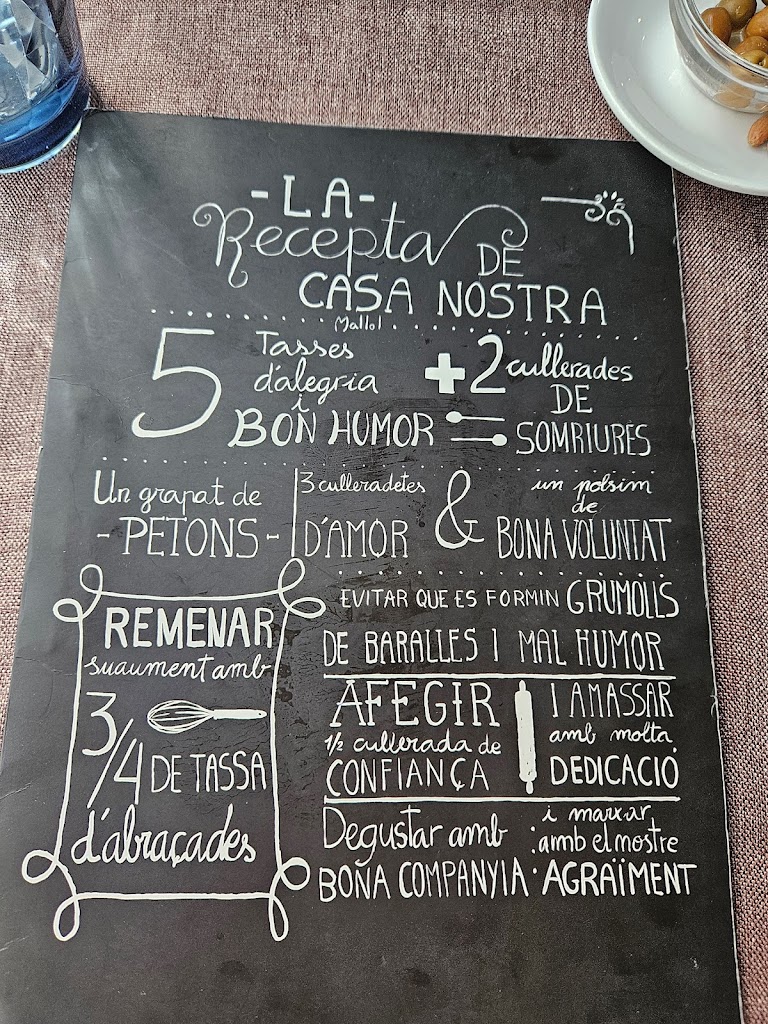 -LA-
Recepta DE
CASA NOSTRA
Mallol
5 Tasses
d'alegria
i
BON HUMOR
+2 cullerades
DE
SOMRIURES
Un grapat de
-PETONS-
3 culleradetes
D'AMOR
&
un polsim
de
BONA VOLUNTAT
REMENAR
suaument amb
3/4 DE TASSA
d'abraçades
EVITAR QUE ES FORMIN GRUMOLLS
DE BARALLES I MAL HUMOR
AFEGIR
1/2 cullerada de
CONFIANÇA
I AMASSAR
amb molta
DEDICACIÓ
Degustar amb
BONA COMPANYIA
i marxar
amb el nostre
AGRAÏMENT